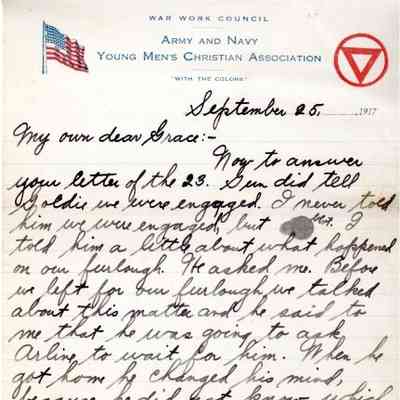 WAR WORK COUNCIL
ARMY AND NAVY
YOUNG MEN'S CHRISTIAN ASSOCIATION
"WITH THE COLORS"
September 25, 1917
My own dear Grace:-
Now to answer
your letter of the 23. Gun did tell
Goldie we were engaged. I never told
him we were engaged, but I
told him a little about what happened
on our furlough. He asked me. Before
we left for our furlough we talked
about this matter and he said to
me that he was going to ask
Arline to wait for him. When he
got home he changed his mind,
because he did not know which